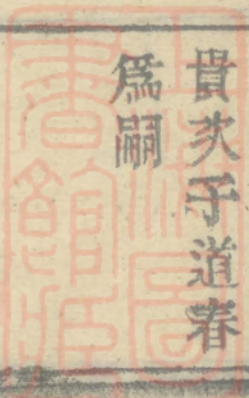 貴次子道春
爲嗣